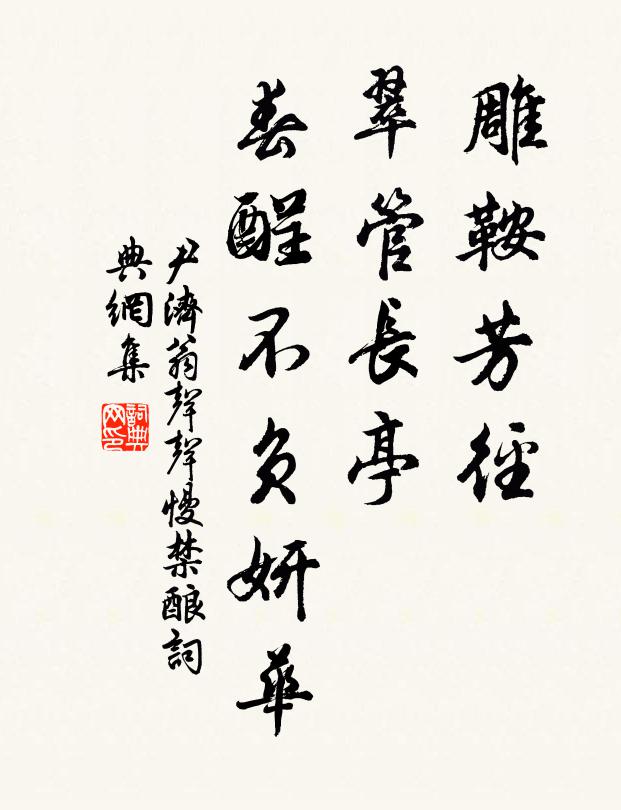 雕鞍芳徑
翠管長亭
春酲不負妍華
尹濟翁聲聲慢禁酿詞
典網集
詞典网印